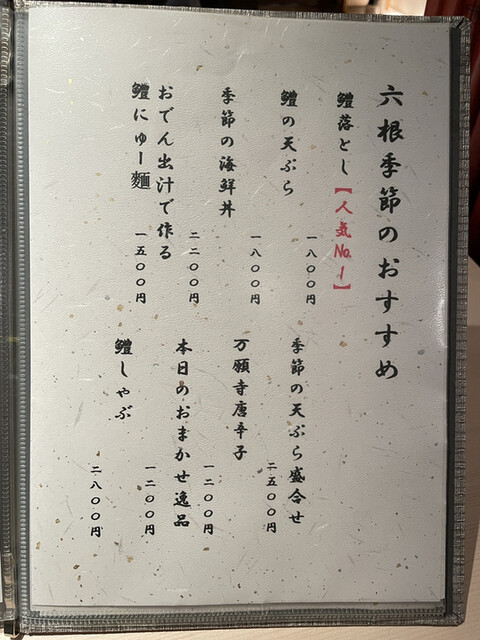 六根季節のおすすめ
鱧落とし【人気No.1】
一八〇〇円
鱧の天ぷら
一八〇〇円
季節の海鮮丼
二二〇〇円
おでん出汁で作る
鱧にゅー麺
一五〇〇円
季節の天ぷら盛合せ
二五〇〇円
万願寺唐辛子
一二〇〇円
本日のおまかせ逸品
一二〇〇円
鱧しゃぶ
二八〇〇円